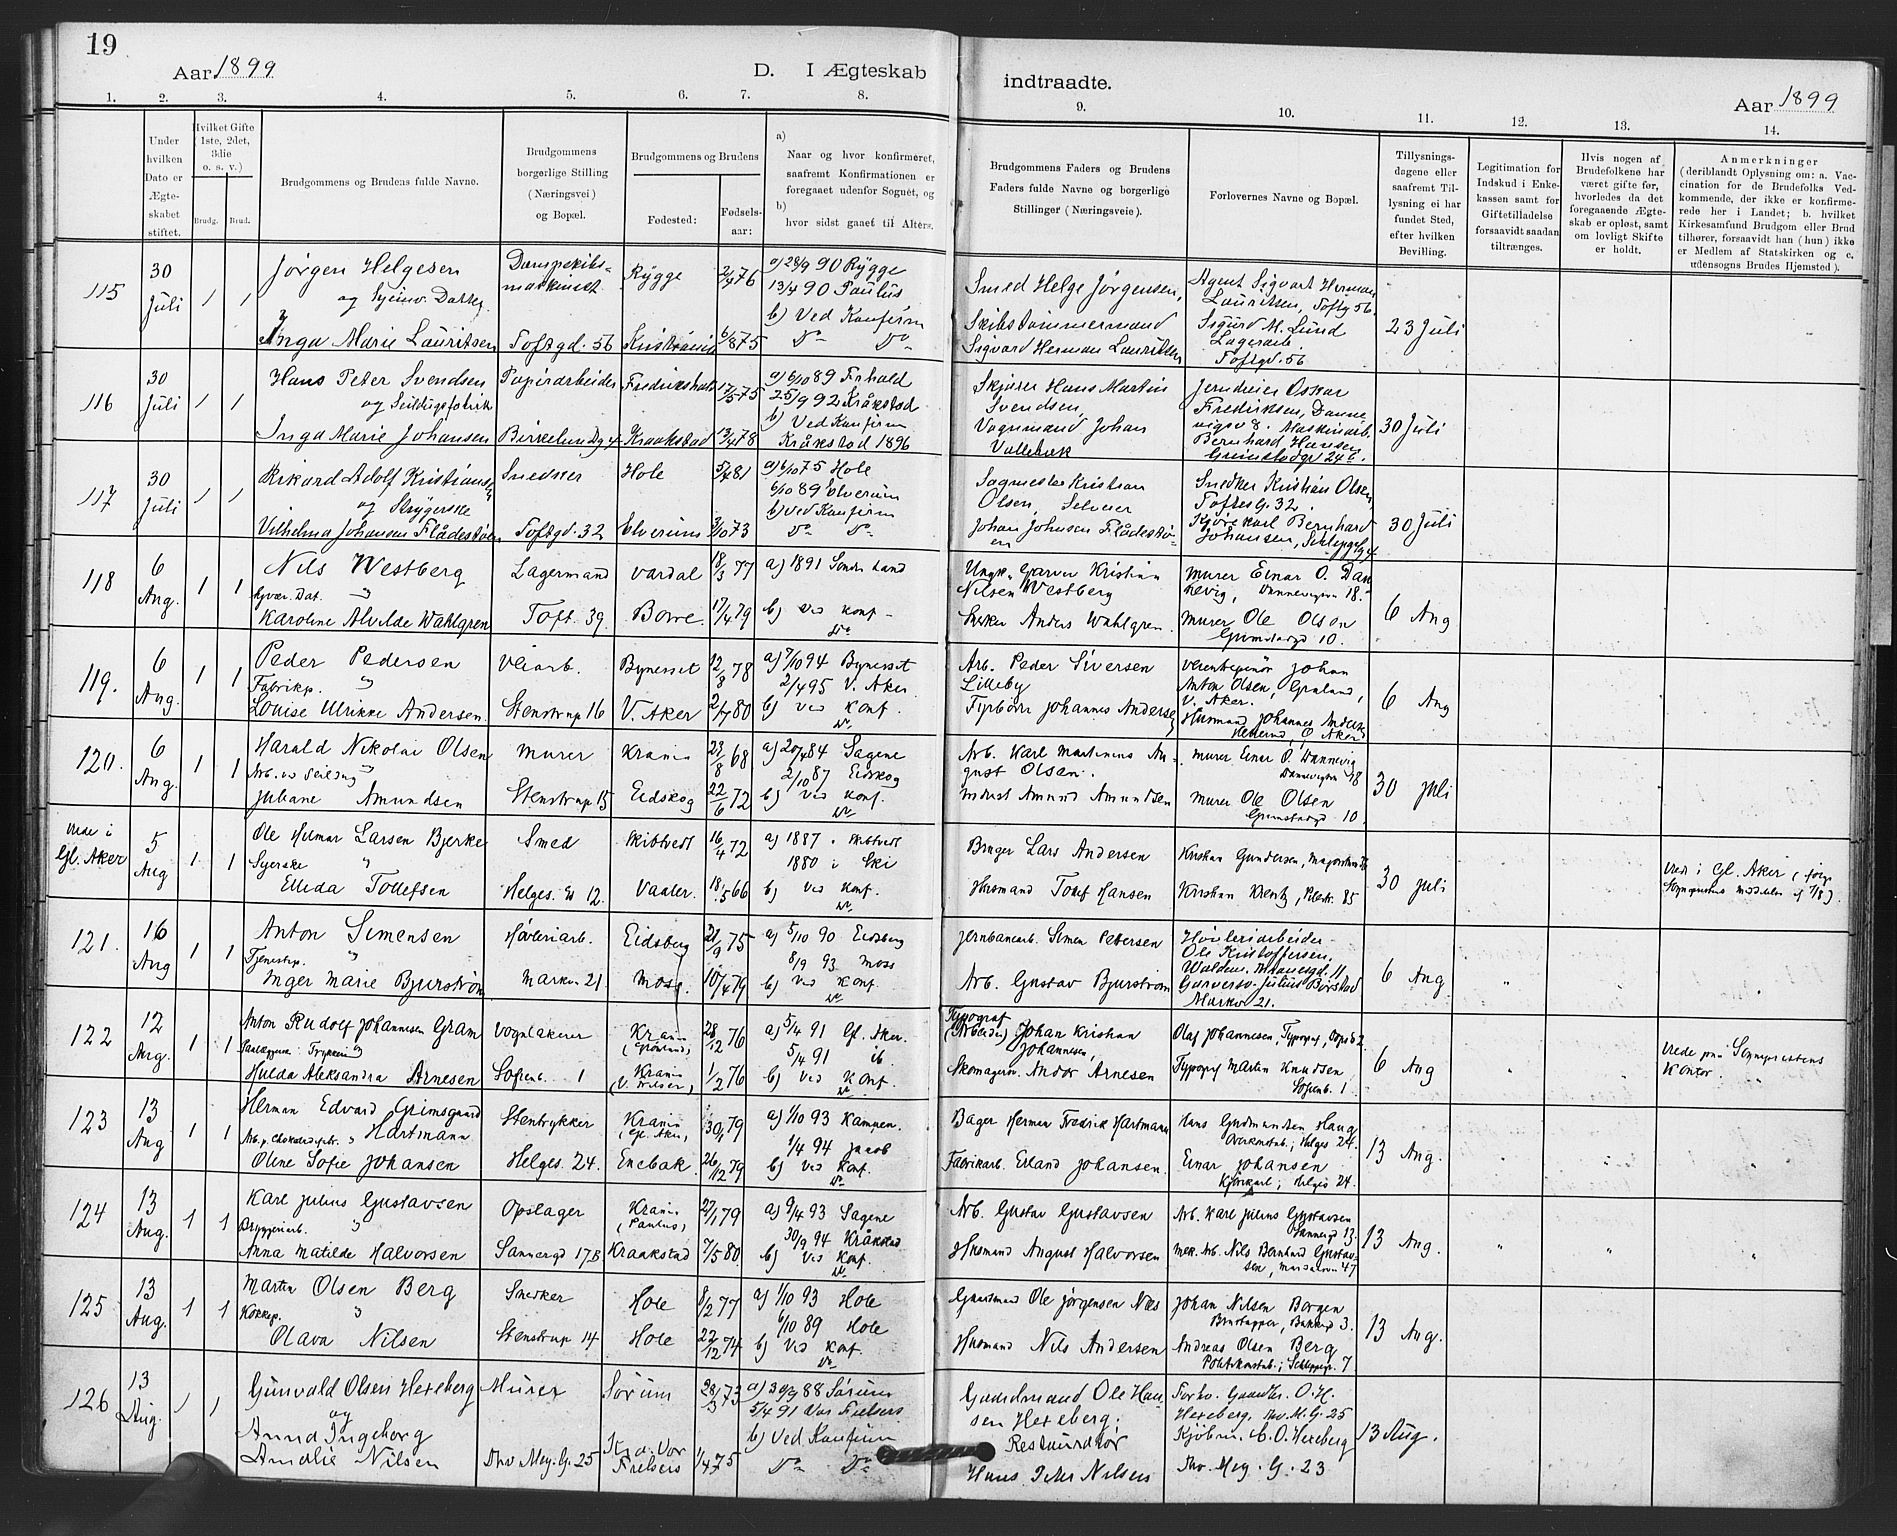 19
Aar 1899
D. I Ægteskab
indtraadte.
Aar 1899
1. 2. 3. 4. 5. 6. 7. 8. 9. 10. 11. 12. 13. 14.
Under hvilken Dato er Ægteskabet stiftet.
Hvilket Gifte (1ste, 2det, 3die o. s. v.)
Brudg. Brud.
Brudgommens og Brudens fulde Navne.
Brudgommens borgerlige Stilling (Næringsvei) og Bopæl.
Brudgommens og Brudens
Fødested: Fødselsaar:
a) Naar og hvor konfirmeret, saafremt Konfirmationen er foregaaet udenfor Sognet, og b) hvor sidst gaaet til Alters.
Brudgommens Faders og Brudens Faders fulde Navne og borgerlige Stillinger (Næringsveie).
Forlovernes Navne og Bopæl.
Tillysningsdagene eller saafremt Tillysning ei har fundet Sted, efter hvilken Bevilling.
Legitimation for Indskud i Enkekassen samt for Giftetilladelse forsaavidt saadan tiltrænges.
Hvis nogen af Brudefolkene har været gifte før, hvorledes da det foregaaende Ægteskab er opløst, samt om lovligt Skifte er holdt.
Anmerkninger (deriblandt Oplysning om: a. Vaccination for de Brudefolks Vedkommende, der ikke er konfirmerede her i Landet; b. hvilket Kirkesamfund Brudgom eller Brud tilhører, forsaavidt han (hun) ikke er Medlem af Statskirken og c. udensogns Brudes Hjemsted).
115 30 Juli 1 1 Jørgen Helgesen Rygge 2/4 76 a) 28/9 90 Rygge Smed Helge Jørgensen, Agent Sigvart Herman Lauritsen, Toftg 56. 23 Juli
13/4 90 Paulus
b) Ved Konfirm
Inga Marie Lauritsen Toftgd. 56 Kristiania 6/8 75 Do Do Skibstømmermand Sigvard Herman Lauritsen Sigurd M. Lund Lagerarb. Toftgd. 56
116 30 Juli 1 1 Hans Peter Svendsen Papirarbeider Fredrikshald 17/5 75 a) 6/10 89 Frhald Skjører Hans Martin Svendsen, Jerndreier Oskar Fredriksen, Dannevigsv 8. 30 Juli
og Seildugsfabrik 25/9 92 Kråkstad
b) Ved Konfirm
Inga Marie Johansen Birkelundg 4 Kraakstad 13/4 78 Kråkstad 1896 Vognmand Johan Vallebæk Maskinarb. Bernhard Hansen Grimstadgt 24 b.
117 30 Juli 1 1 Rikard Adolf Kristiansen Snedker Hole 5/4 81 a) 6/10 75 Hole Sagmester Kristian Olsen, Snedker Kristian Olsen, Toftesg. 32. 30 Juli
og Strygerske 6/10 89 Elverum
b) Ved Konfirm
Vilhelma Johansen Flådestøen Toftgd. 32 Elverum 3/10 73 Do Do Johan Johnsen Flådestøen Kjørekarl Bernhard Johansen, Schleppegt 4
118 6 Aug. 1 1 Nils Westberg Lagermand Vardal 18/3 77 a) 1891 Søndre Land Garver Kristian Nilsen Westberg Murer Einar O. Dannevig, Dannevigsvn 18. 6 Aug
Hjvær. Dat. "
Karoline Alvilde Wahlgren Toft. 39. Borre. 17/4 79 b) ved konf. Do Snedker Anders Wahlgren. Murer Ole Olsen Grimstadgd 10.
119. 6 Aug. 1 1 Peder Pedersen Veiarb. Bynesset 12/8 78 a) 7/10 94 Bynesset Arb. Peder Siversen Lilleby Johan Anton Olsen, Grønland, V. Aker. 6 Aug
Fabrikp. " 2/4 95 V. Aker
Louise Ulrikke Andersen. Stenstrup 16 V. Aker 2/7 80 b) ved Konf. Do Fyrbøder Johannes Andersen Husmand Johannes Andersen, Ø Aker
120. 6 Aug. 1 1 Harald Nikolai Olsen Murer Krania 27/8 68 a) 20/4 84 Sagene Arb. Karl Martinius August Olsen. Murer Einar O. Dannevig Dannevigsvn 18 30 juli
Arb. ved Seildug " 2/10 87 Eidskog
Juliane Amundsen Stenstrup 15 Eidskog 22/6 72 b) ved Konf. Do Inderst Amund Amundsen Murer Ole Olsen Grimstadgd 10.
Viede i Gl. Aker 5 Aug 1 1 Ole Helmar Larsen Bjerke Smed Skibtvedt 16/4 72 a) 1887 i Skibtvedt Bruger Lars Andersen Kristian Gundersen, Majorstuen 30 juli Viede i Gl. Aker (ifølge Sognepræstens meddelelse af 7/8).
Syerske " 1880 i Ski
Ellida Tollefsen Helges. gt 12. Vaaler. 18/5 66 b) ved Konf. Do Husmand Tollef Hansen Kristian Krentz, Pilestr. 85
121. 16 Aug 1 1 Anton Simensen Høvleriarb. Eidsberg 21/9 75 a) 5/10 90 Eidsberg Jernbanearb. Simen Petersen Høvleriarbeider Ole Kristoffersen. 6 Aug
Tjenestep. " 8/9 93 Moss
Inger Marie Bjurstrøm Markvn 21. Moss. 10/4 79 b) ved Konf. Do Arb. Gustav Bjurstrøm Waldem. Thranesgd. 11 Garversv. Julius Børstad Markvn 21.
122 12 Aug. 1 1 Anton Rudolf Johannesen Gram Vognlakerer Krania (Grønland) 28/12 76 a) 5/4 91 Gl. Aker. Typograf (Arbeider) Johan Kristian Johannesen, Olaf Johannesen, Typograf 6 Aug Viede paa Sognepræstens Kontor.
Paalæggerske Trykkeri " 5/4 91 ib
Hulda Aleksandra Arnesen Sofienb. 1 Krania 1/2 76 b) ved Konf. Skomagersv. Andor Arnesen Typograf Martin Knudsen, Sofienb. 1.
123 13 Aug 1 1 Herman Edvard Grimsgaard Hartmann Stentrykker Krania (Gl. Aker) 30/1 79 a) 1/10 93 Kampen. Bager Herman Fredrik Hartmann Hans Gudmundsen Haug, Helges 24. 13 Aug.
Arb. p. Chokoladefabr. " 1/4 94 Jacob
Oline Sofie Johansen Helges. 24. Enebak. 26/12 79 b) ved Konf. Do Fabrikarb. Erland Johansen. Einar Johansen Kjørekarl, Helges 24.
124 13 Aug. 1 1 Karl Julius Gustavsen Opslager Krania (Paulus) 27/1 79 a) 9/4 93 Sagene Arb. Gustav Gustavsen Arb. Karl Julius Gustavsen Sannergd 13. 13 Aug.
Bryggeriarb. " 30/9 94 Kråkstad
Anna Matilde Halvorsen Sannergd 17B Kraakstad 7/5 80 b) ved Konf. Do Husmand August Halvorsen Mek. Arb. Nils Bernhard Gustavsen, Maridalsvn 47
125 13 Aug. 1 1 Martin Olsen Berg Snedker Hole 8/2 77 a) 1/10 93 Hole Gaardmand Ole Jørgensen Næs Johan Nilsen Borgen Brøndtapper, Bakkegd 3. 13 Aug.
Kokkep. " 6/10 89 Hole
Olava Nilsen Stenstrup 14 Hole 22/12 74 b) ved Konf. Do Husmand Nils Andersen Andreas Olsen Berg Politikonstab., Schleppegr. 7
126 13 Aug. 1 1 Gunvald Olsen Hexeberg Murer Sørum 28/3 73 a) 30/9 88 Sørum Gaardmand Ole Hansen Hexeberg; Forhv. Gaardbr. O. H. Hexeberg, Thv. M. G. 25 13 Aug.
og 5/4 91 Vor Frelsers
b) Ved Konfirm
Anna Ingeborg Amalie Nilsen Thv Mey. G. 25 Kra. Vor Frelsers 1/4 75 Do Do Restauratør Hans Peter Nilsen Kjøbm. C. O. Hexeberg Thv. Mey. G. 23